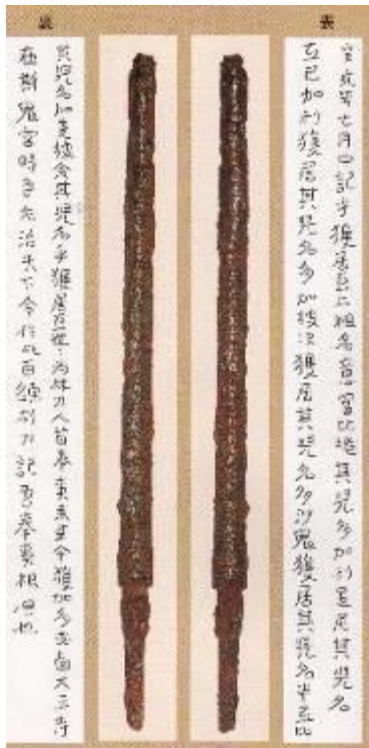 表
辛亥年七月中記乎獲居臣上祖名意富比垝其児多加利足尼其児名
弖已加利獲居其児名多加披次獲居其児名多沙鬼獲居其児名半弖比
裏
其児名加差披余其児名乎獲居臣世々為杖刀人首奉事来至今獲加多支鹵大王寺
在斯鬼宮時吾左治天下令作此百練利刀記吾奉事根原也